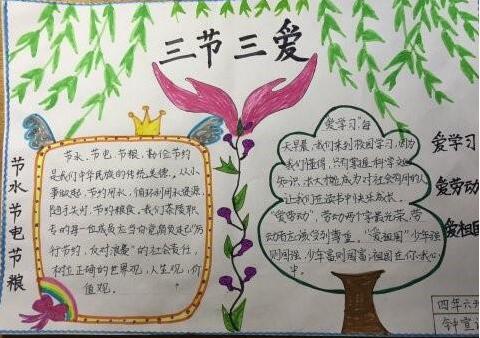 三节三爱
节水节电节粮
节水、节电、节粮，勤俭节约
是我们中华民族的传统美德。从小
事做起，节约用水，循环利用水资源，
随手关灯，节约粮食。我们
专的每一位成员去当自觉肩负起"厉
行节约，反对浪费"的社会责任，
树立正确的世界观，人生观，价
值观。
爱学习：每
天早晨，我们来到校园学习，因为
我们懂得，只有掌握科学文化
知识，长大才能成为对社会有用的人
让我们在读书中快乐成长。
"爱劳动"，劳动两个字最光荣，劳
动者应该受到尊重。"爱祖国"少年强
则国强，少年富则国富，祖国在你我心
中。
爱学习
爱劳动
爱祖国
四年六班
钟宣